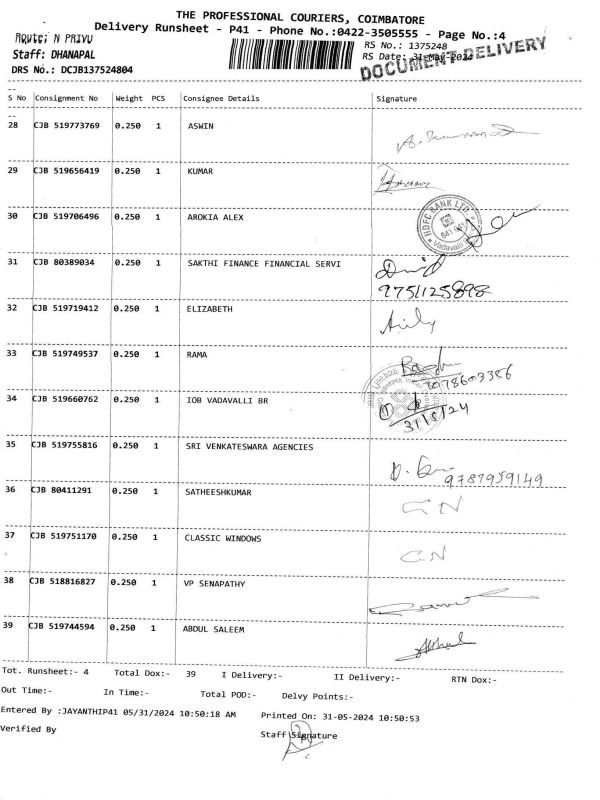 THE PROFESSIONAL COURIERS, COIMBATORE
Delivery Runsheet - P41 - Phone No.:0422-3505555 - Page No.:4
Route: N PRIYU
RS No.: 1375248
Staff: DHANAPAL
RS Date: 31-May-2024
DOCUMENT DELIVERY
DRS No.: DCJB137524804
S No Consignment No Weight PCS Consignee Details Signature
28 CJB 519773769 0.250 1 ASWIN
29 CJB 519656419 0.250 1 KUMAR
30 CJB 519706496 0.250 1 AROKIA ALEX
HDFC BANK LTD
Vadavalli
31 CJB 80389034 0.250 1 SAKTHI FINANCE FINANCIAL SERVI
9751125898
32 CJB 519719412 0.250 1 ELIZABETH
33 CJB 519749537 0.250 1 RAMA
34 CJB 519660762 0.250 1 IOB VADAVALLI BR
31/5/24
35 CJB 519755816 0.250 1 SRI VENKATESWARA AGENCIES
9787959149
36 CJB 80411291 0.250 1 SATHEESHKUMAR
37 CJB 519751170 0.250 1 CLASSIC WINDOWS
38 CJB 518816827 0.250 1 VP SENAPATHY
39 CJB 519744594 0.250 1 ABDUL SALEEM
Tot. Runsheet:- 4 Total Dox:- 39 I Delivery:- II Delivery:- RTN Dox:-
Out Time:- In Time:- Total POD:- Delvy Points:-
Entered By :JAYANTHIP41 05/31/2024 10:50:18 AM Printed On: 31-05-2024 10:50:53
Verified By Staff Signature